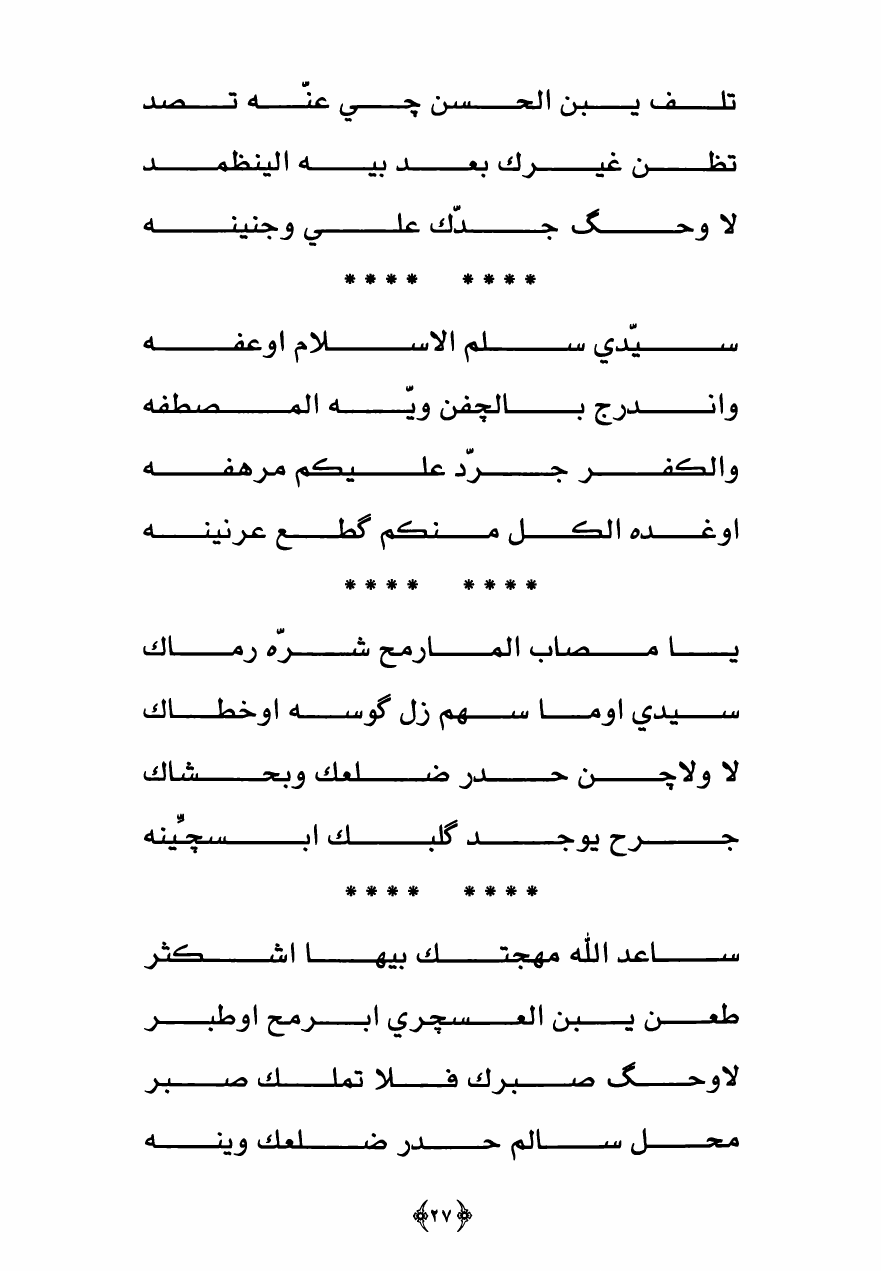 تلف يبن الحسن چي عنّه تصد
تظن غيرك بعد بيه الينظمد
لا وحگ جدّك علي وجنينه
**** ****
سيّدي سلم الاسلام اوعفه
واندرج بالچفن ويّه المصطفه
والكفر جرّد عليكم مرهفه
اوغده الكل منكم گطع عرنينه
**** ****
يا مصاب المارمح شرّه رماك
سيدي اوما سهم زل گوسه اوخطاك
لا ولاچن حدر ضلعك وبحشاك
جرح يوجد گلبك ابسچّينه
**** ****
ساعد الله مهجتك بيها اشكثر
طعن يبن العسچري ابرمح اوطبر
لاوحگ صبرك فلا تملك صبر
محل سالم حدر ضلعك وينه
﴿٢٧﴾